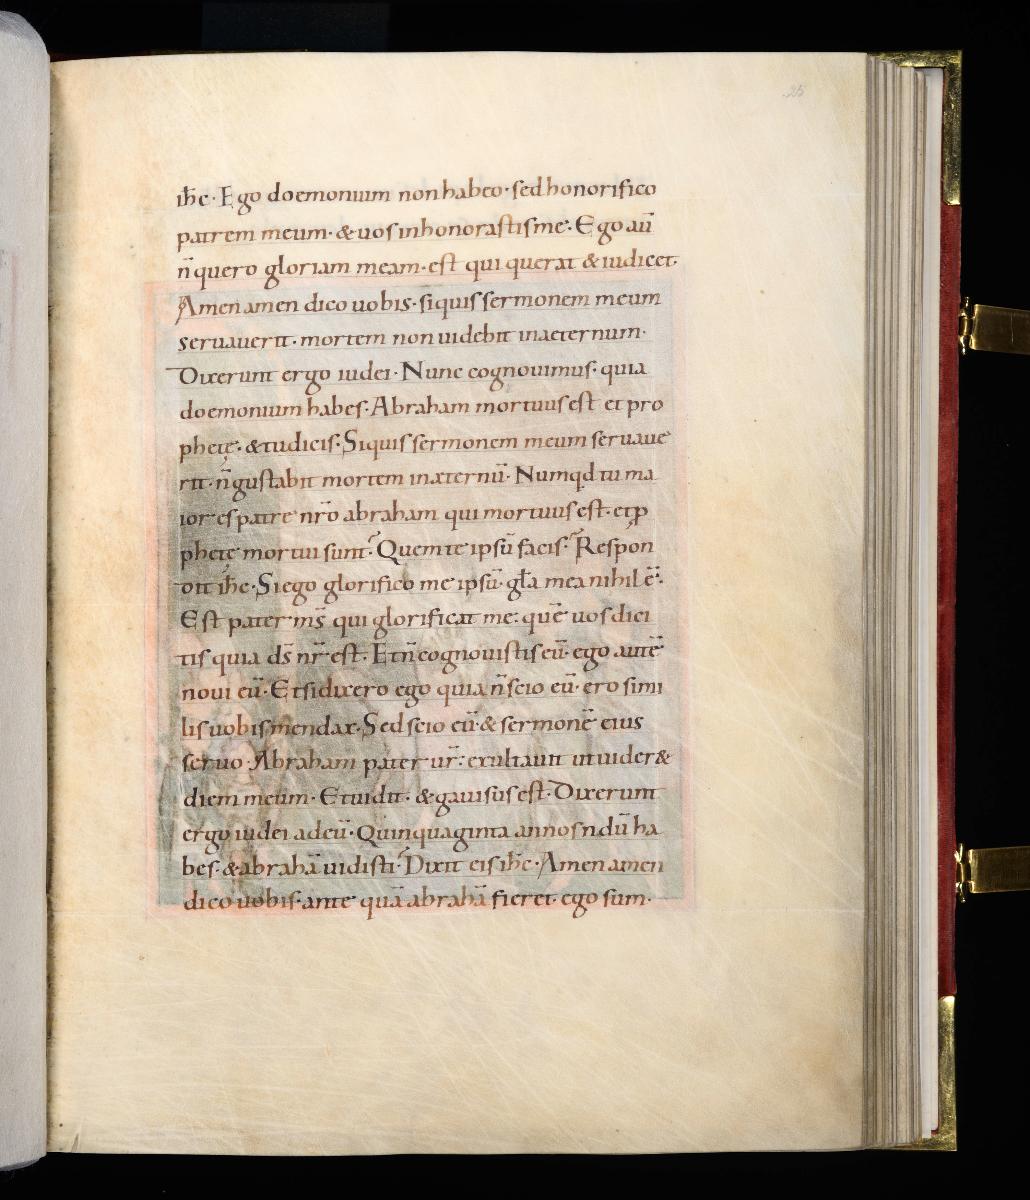 25
ihc · Ego doemonium non habeo · sed honorifico
patrem meum · & uos inhonorastis me · Ego aū
n̄ quero gloriam meam · est qui querat & iudicet ·
Amen amen dico uobis · siquis sermonem meum
seruauerit · mortem non uidebit inaeternum ·
Dixerunt ergo iudei · Nunc cognouimus · quia
doemonium habes · Abraham mortuus est et pro
phetę · & tu dicis · Siquis sermonem meum seruaue
rit · n̄ gustabit mortem inæternū · Numqd tu ma
ior es patre nr̄o abraham qui mortuus est · et ꝓ
phetę mortui sunt? Quem te ipsū facis? Respon
dit ihc · Si ego glorifico me ipsū · gła mea nihil ē ·
Est pater ms̄ qui glorificat me : quē uos dici
tis quia ds̄ nr̄ est · Et n̄ cognouistis eū · ego autē
noui eū · Et si dixero ego quia n̄ scio eū · ero simi
lis uobis mendax · Sed scio eū · & sermonē eius
seruo · Abraham pater ur̄ : exultauit ut uider&
diem meum · Et uidit · & gauisus est · Dixerunt
ergo iudei ad eū · Quinquaginta annos ndū ha
bes · & abrahā uidisti? Dixit eis ihc · Amen amen
dico uobis · ante quā abrahā fieret · ego sum ·